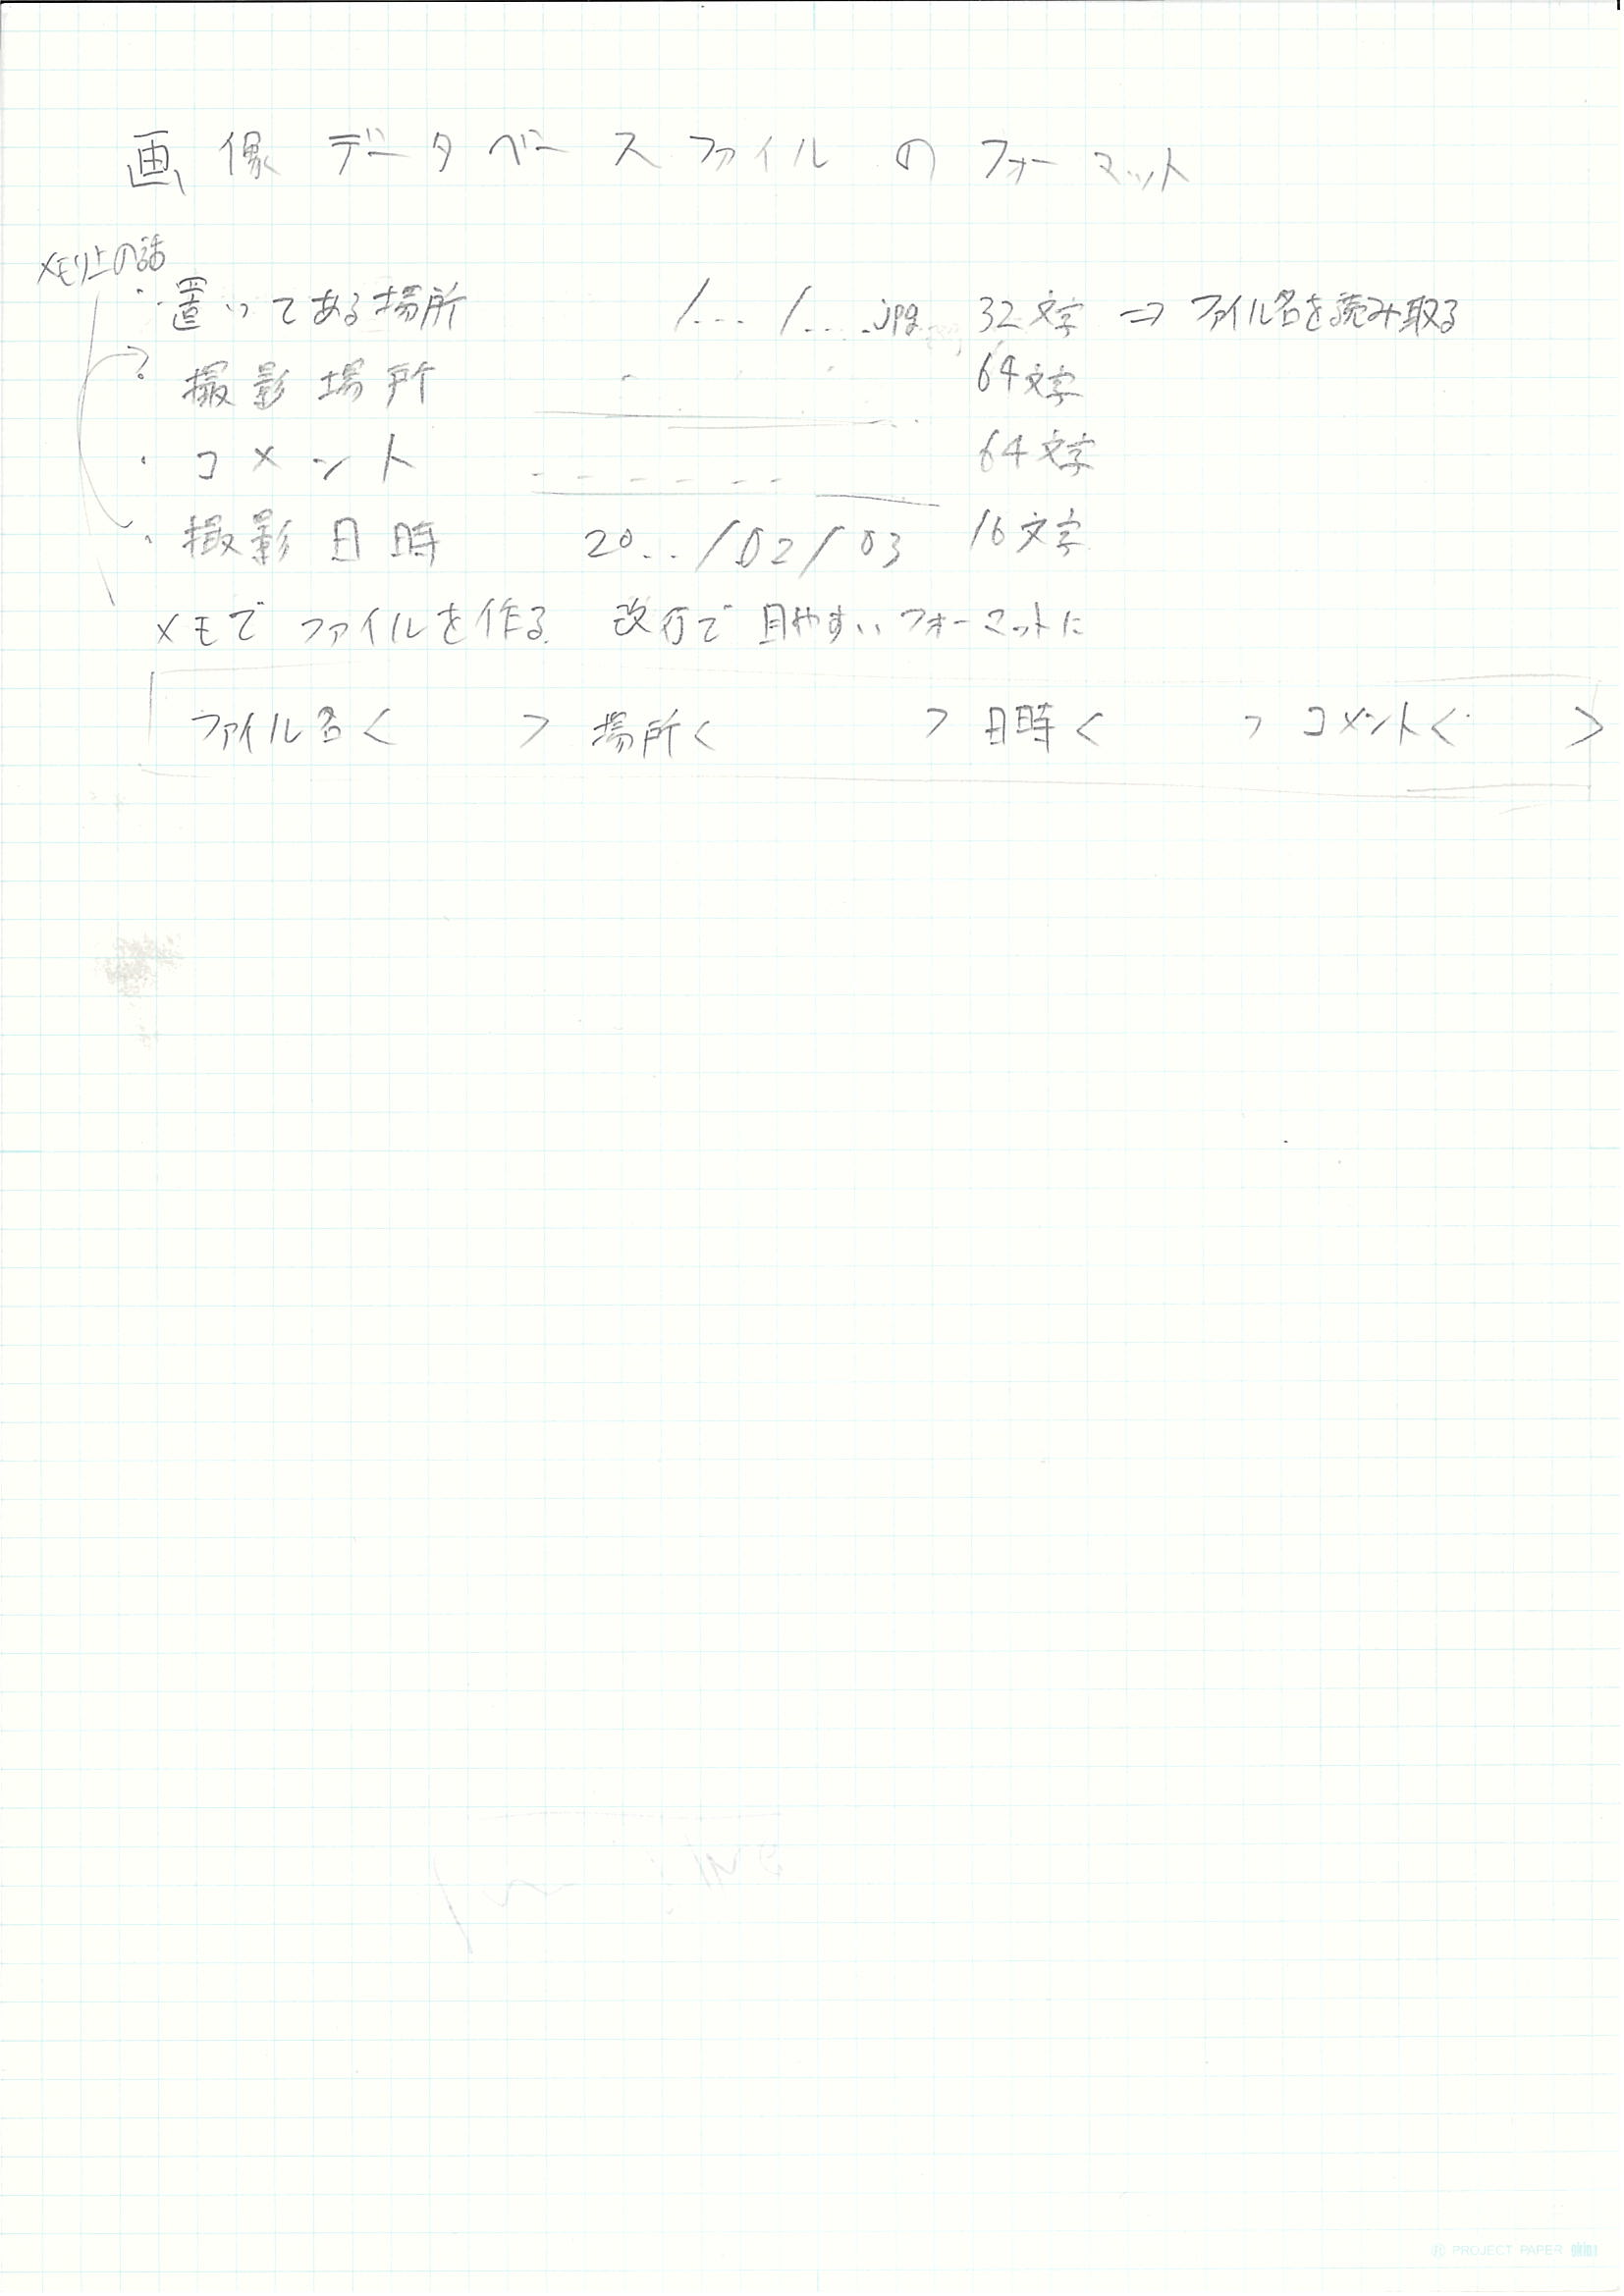 画像データベースファイルのフォーマット
メモリ上の話
・置いてある場所 /... /... .jpg 32文字 ⇒ ファイル名を読み取る
撮影場所 64文字
・コメント 64文字
・撮影日時 20.../02/03 16文字
メモでファイルを作る 改行で目やすいフォーマットに
ファイル名< > 場所< > 日時< > コメント< >
PROJECT PAPER